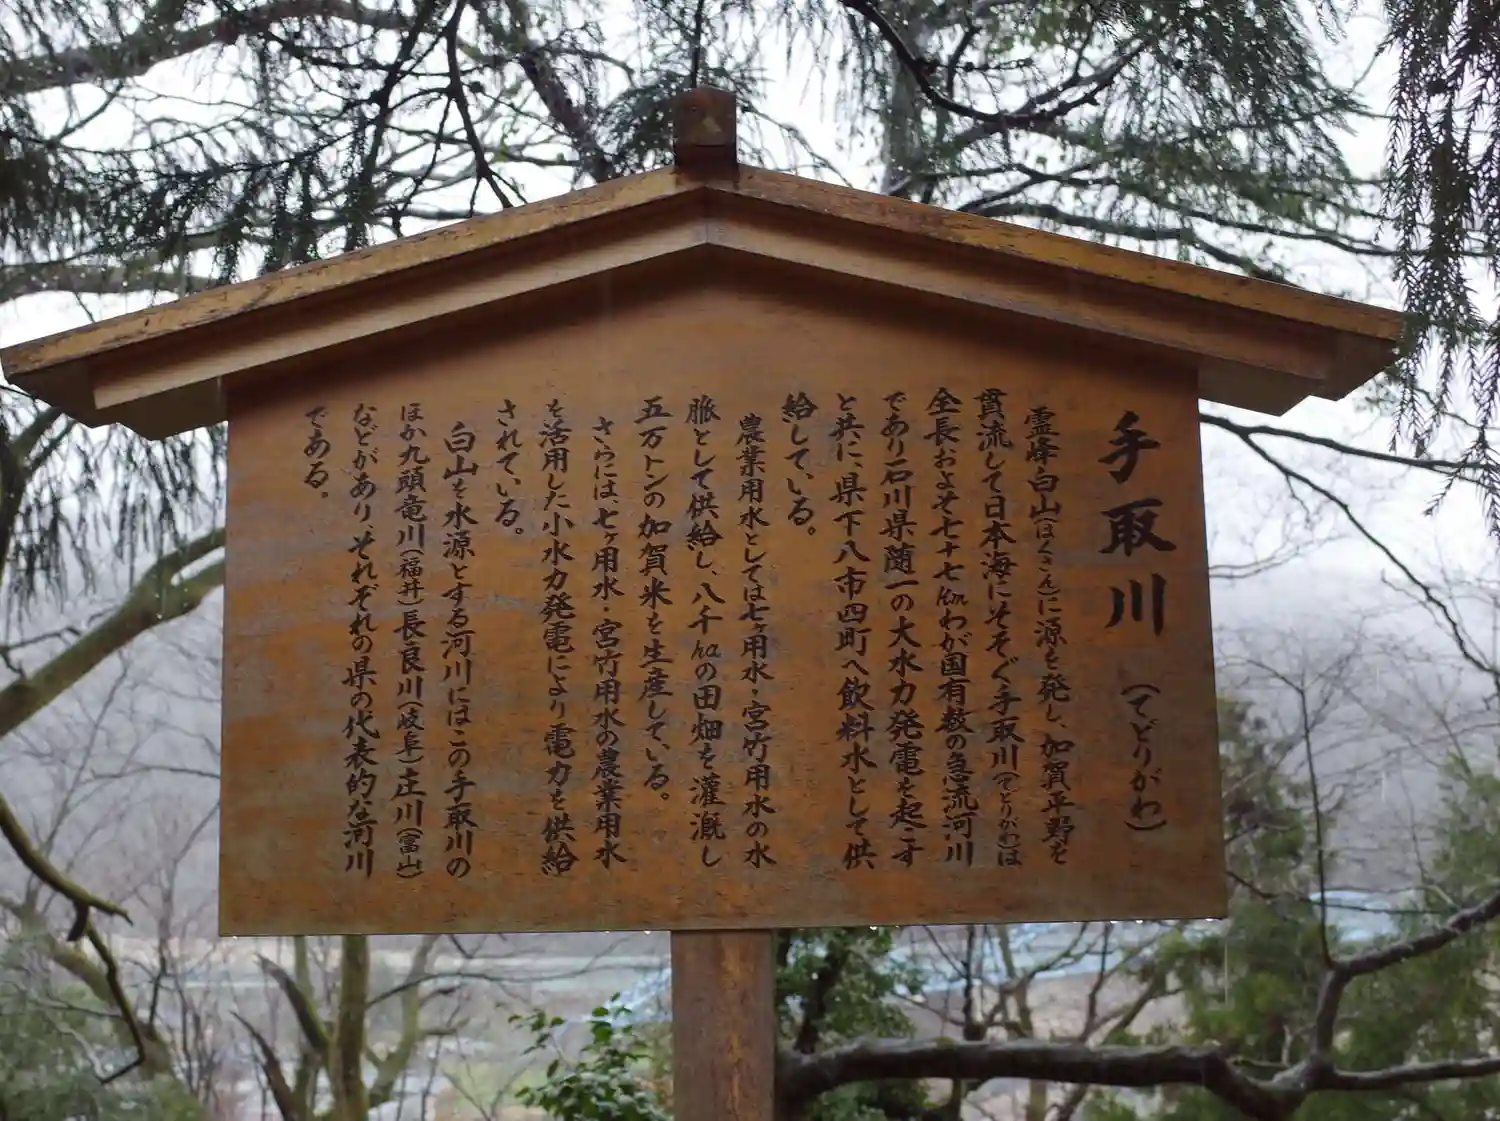 手取川（てどりがわ）
霊峰白山（はくさん）に源を発し、加賀平野を
貫流して日本海にそそぐ手取川（てどりがわ）は
全長およそ七十七㎞わが国有数の急流河川
であり石川県随一の大水力発電を起こす
と共に、県下八市四町へ飲料水として供
給している。
農業用水としては七ヶ用水・宮竹用水の水
脈として供給し、八千haの田畑を灌漑し
五万トンの加賀米を生産している。
さらには、七ヶ用水・宮竹用水の農業用水
を活用した小水力発電により電力を供給
されている。
白山を水源とする河川にはこの手取川の
ほか九頭竜川（福井）長良川（岐阜）庄川（富山）
などがあり、それぞれの県の代表的な河川
である。